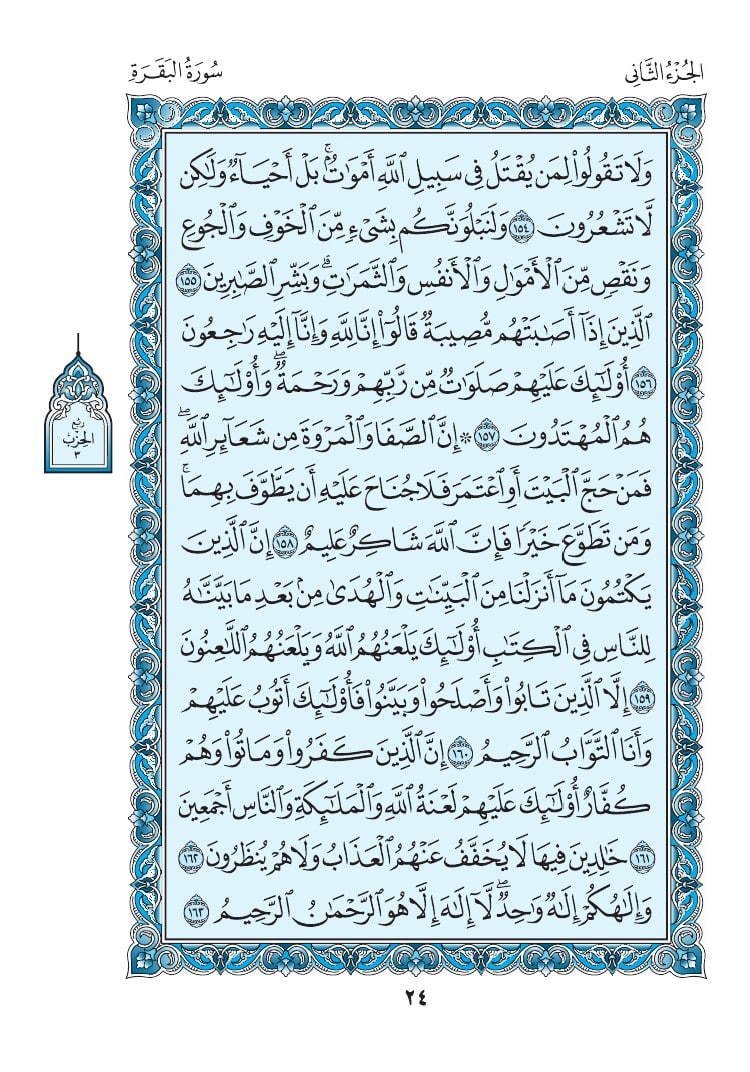 الجُزْءُ الثَّانِي
سُورَةُ البَقَرَةِ
وَلَا تَقُولُواْ لِمَن يُقْتَلُ فِي سَبِيلِ ٱللَّهِ أَمۡوَٰتُۢۚ بَلۡ أَحۡيَآءٞ وَلَٰكِن
لَّا تَشۡعُرُونَ ١٥٤ وَلَنَبۡلُوَنَّكُم بِشَيۡءٖ مِّنَ ٱلۡخَوۡفِ وَٱلۡجُوعِ
وَنَقۡصٖ مِّنَ ٱلۡأَمۡوَٰلِ وَٱلۡأَنفُسِ وَٱلثَّمَرَٰتِۗ وَبَشِّرِ ٱلصَّٰبِرِينَ ١٥٥
ٱلَّذِينَ إِذَآ أَصَٰبَتۡهُم مُّصِيبَةٞ قَالُوٓاْ إِنَّا لِلَّهِ وَإِنَّآ إِلَيۡهِ رَٰجِعُونَ
١٥٦ أُوْلَٰٓئِكَ عَلَيۡهِمۡ صَلَوَٰتٞ مِّن رَّبِّهِمۡ وَرَحۡمَةٞۖ وَأُوْلَٰٓئِكَ
هُمُ ٱلۡمُهۡتَدُونَ ١٥٧ ۞ إِنَّ ٱلصَّفَا وَٱلۡمَرۡوَةَ مِن شَعَآئِرِ ٱللَّهِۖ
فَمَنۡ حَجَّ ٱلۡبَيۡتَ أَوِ ٱعۡتَمَرَ فَلَا جُنَاحَ عَلَيۡهِ أَن يَطَّوَّفَ بِهِمَاۚ
وَمَن تَطَوَّعَ خَيۡرٗا فَإِنَّ ٱللَّهَ شَاكِرٌ عَلِيمٌ ١٥٨ إِنَّ ٱلَّذِينَ
يَكۡتُمُونَ مَآ أَنزَلۡنَا مِنَ ٱلۡبَيِّنَٰتِ وَٱلۡهُدَىٰ مِنۢ بَعۡدِ مَا بَيَّنَّٰهُ
لِلنَّاسِ فِي ٱلۡكِتَٰبِ أُوْلَٰٓئِكَ يَلۡعَنُهُمُ ٱللَّهُ وَيَلۡعَنُهُمُ ٱللَّٰعِنُونَ
١٥٩ إِلَّا ٱلَّذِينَ تَابُواْ وَأَصۡلَحُواْ وَبَيَّنُواْ فَأُوْلَٰٓئِكَ أَتُوبُ عَلَيۡهِمۡ
وَأَنَا ٱلتَّوَّابُ ٱلرَّحِيمُ ١٦٠ إِنَّ ٱلَّذِينَ كَفَرُواْ وَمَاتُواْ وَهُمۡ
كُفَّارٌ أُوْلَٰٓئِكَ عَلَيۡهِمۡ لَعۡنَةُ ٱللَّهِ وَٱلۡمَلَٰٓئِكَةِ وَٱلنَّاسِ أَجۡمَعِينَ
١٦١ خَٰلِدِينَ فِيهَا لَا يُخَفَّفُ عَنۡهُمُ ٱلۡعَذَابُ وَلَا هُمۡ يُنظَرُونَ ١٦٢
وَإِلَٰهُكُمۡ إِلَٰهٞ وَٰحِدٞۖ لَّآ إِلَٰهَ إِلَّا هُوَ ٱلرَّحۡمَٰنُ ٱلرَّحِيمُ ١٦٣
رُبْع
الحِزْبِ
٣
٢٤